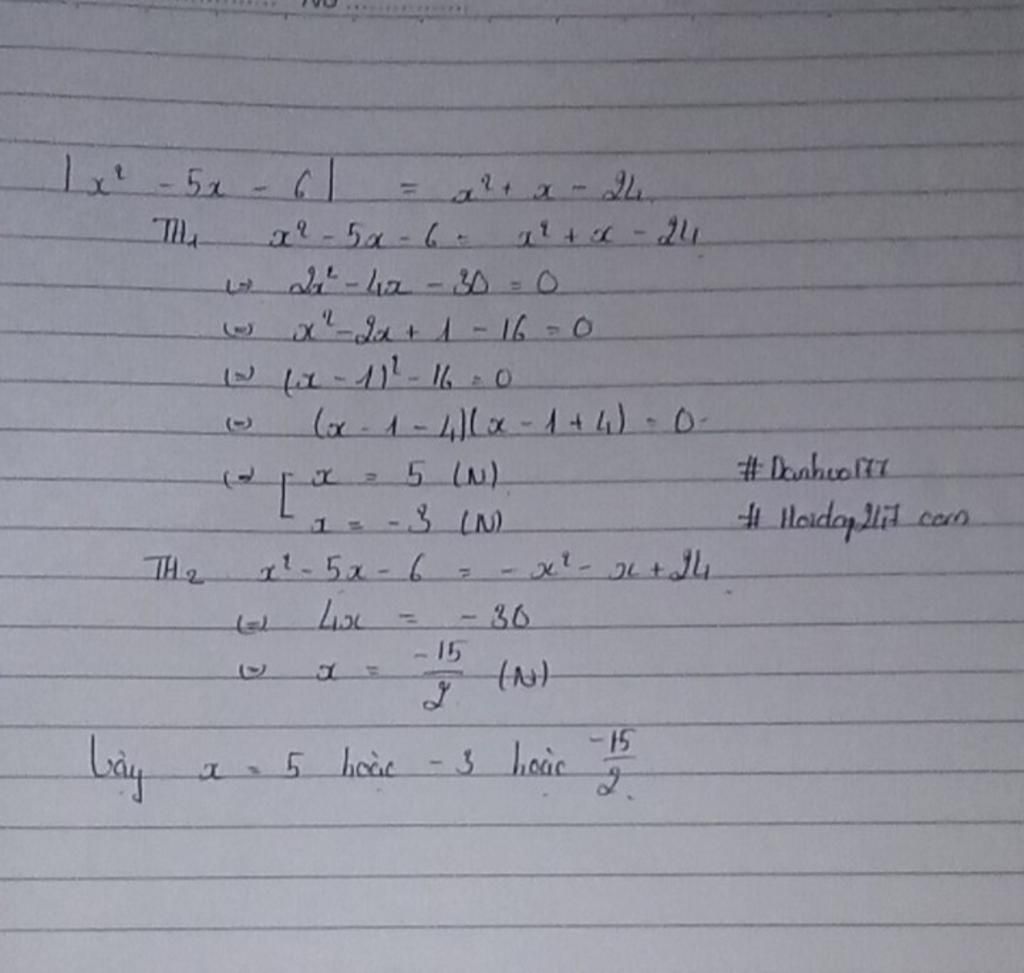 No
|x² - 5x - 6| = x² + x - 24
TH1 x² - 5x - 6 = x² + x - 24
(=) 2x² - 4x - 30 = 0
(=) x² - 2x + 1 - 16 = 0
(=) (x - 1)² - 16 = 0
(=) (x - 1 - 4)(x - 1 + 4) = 0
(=) [ x = 5 (N)
#Danhvo177
x = -3 (N)
# Hoidap247 com
TH2 x² - 5x - 6 = - x² - x + 24
(=) 4x = - 30
(=) x = -15/2 (N)
Vậy x = 5 hoặc - 3 hoặc -15/2.